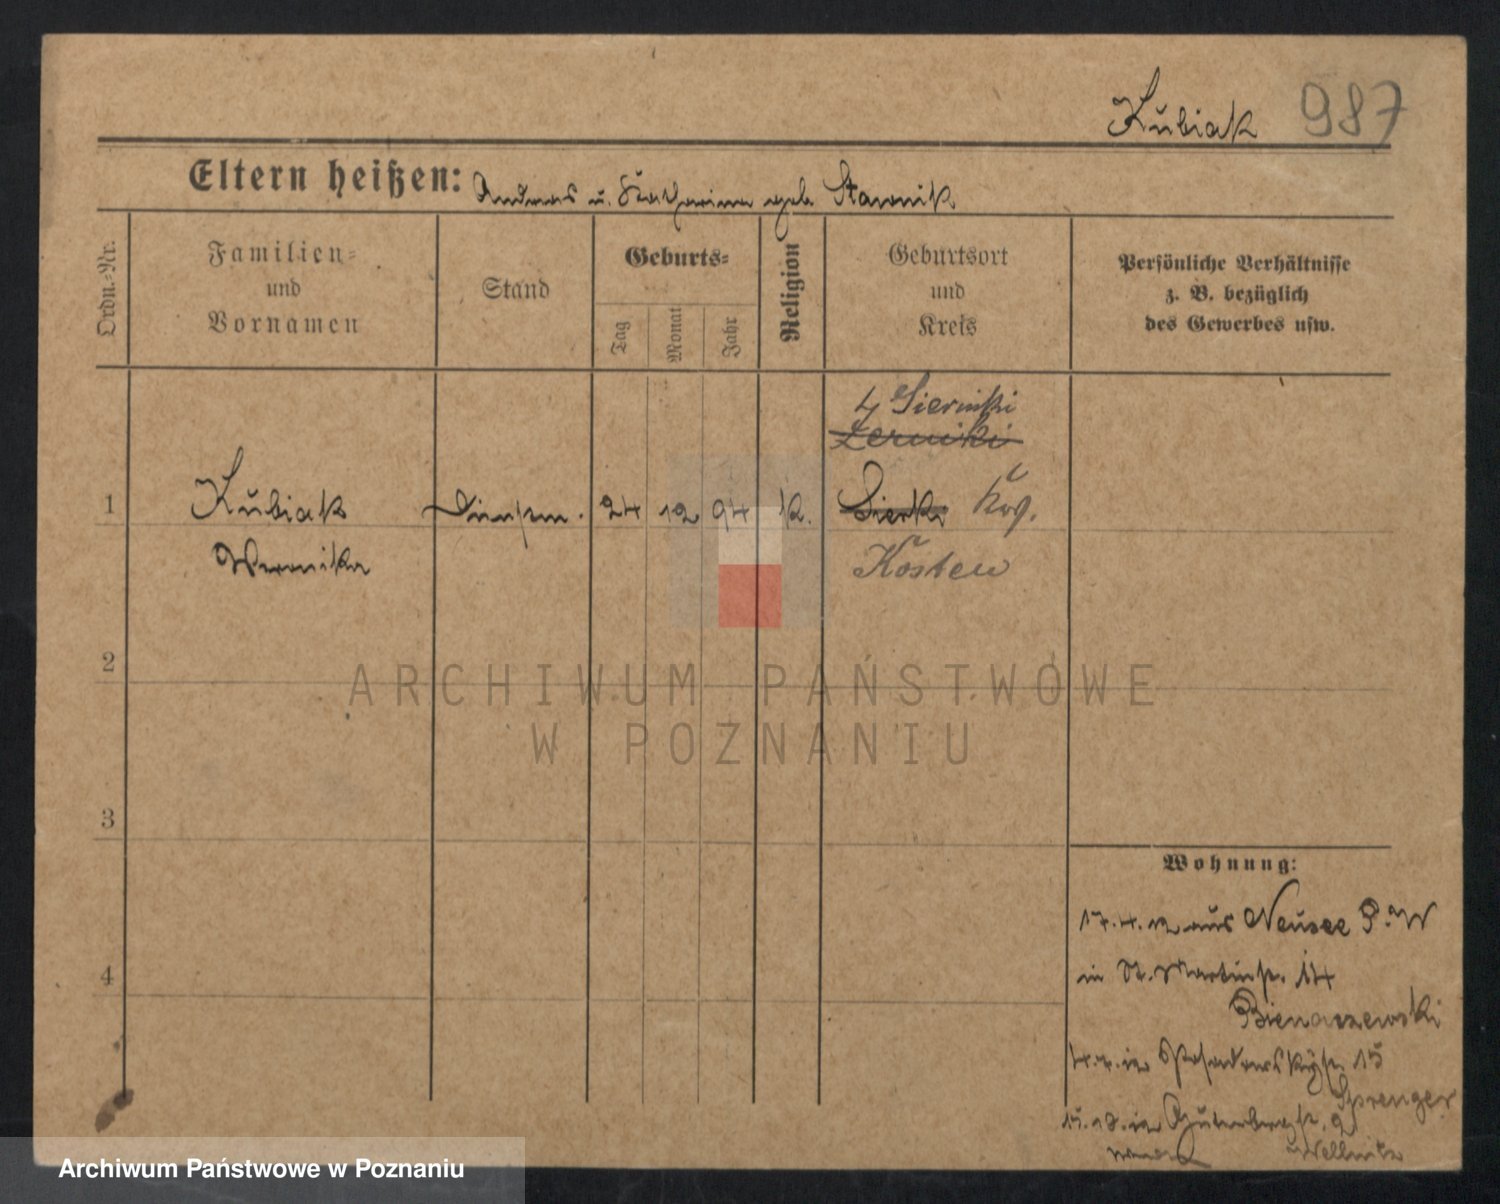 Kubiak 987
Eltern heißen: Andreas u. Katharina geb Stawnik
Ordn.-Nr.
Familien-
und
Vornamen
Stand
Geburts-
Tag
Monat
Jahr
Religion
Geburtsort
und
Kreis
Persönliche Verhältnisse
z. B. bezüglich
des Gewerbes usw.
Sierniki
Zerniki
1 Kubiak 24 12 94 k. Sierki
Weronika Kosten
2
3
4
Wohnung:
17.4.12 aus Neusee P. W
in St. Martinstr. 14
Bienaszewski
15
Sprenger
Gutenbergstr. 2
ARCHIWUM PAŃSTWOWE
W POZNANIU
Archiwum Państwowe w Poznaniu